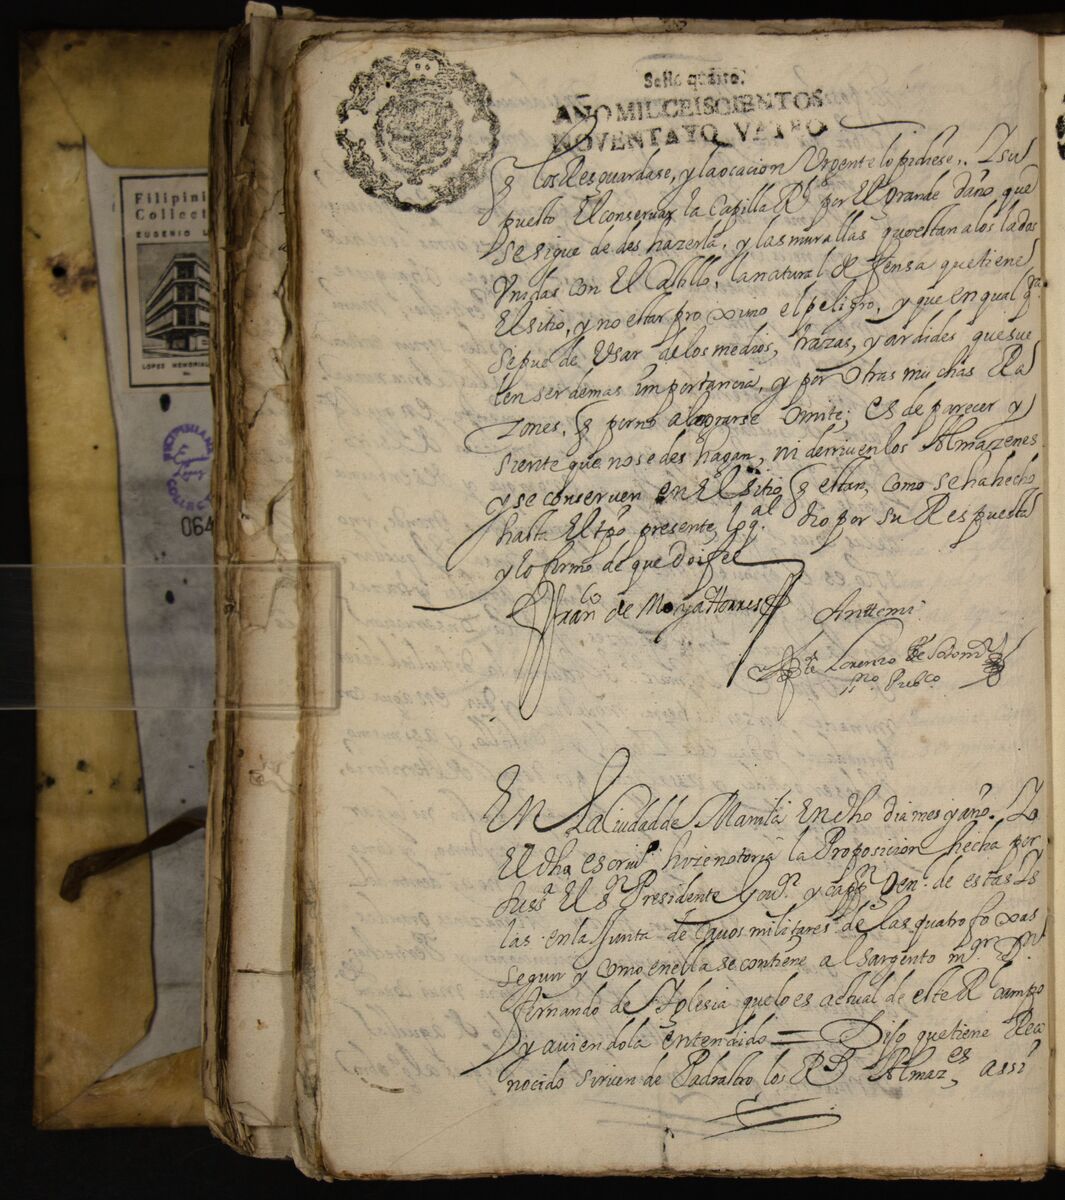 Sello quarto.
AÑO MIL CEISCIENTOS
NOVENTA YQVATRO
q los Resguardase, y la ocacion Urgente lo pidiese. Y su
puesto El conservar la Capilla Rl. por El grande daño, que
se sigue de des hazerla, y las murallas que estan a los lados
Vnidas con El Castillo, la natural defensa que tiene
El sitio, y no estar proximo el peligro, y que en qual qr.
se pue de Usar de los medios, trazas, y ardides que sue
len ser de mas importancia, y por otras muchas Ra
zones, q por no alargarse omite; es de parecer y
siente que no se des hagan, ni derriven los Almazenes
y se conserven en El sitio q estan, como se ha hecho
hasta El tpo presente, lo ql. dio por su Respuesta
y lo firmo de que doi fe
Franco de Moya Torres
Anttemi
Lorenzo
no Pubco
En La Ciudad de Manila En dho dia mes y año. Yo
El dho escriuo. hize notoria la Proposicion hecha por
El sr. Presidente Gour. y capn. Gen. de estas Ys
las en la Junta de Cauos militares de las quatro foxas
seguir y como en ella se contiene al Sargento mr. Dn.
Fernando de Yglesia que lo es actual de este Rl campo
y aviendola entendido = Dijo que tiene Reco
nocido sirven de Padrastro los Rs Almazes, assi
Filipini
Collect
EUGENIO L
LOPEZ MEMORIAL
FILIPINIANA
COLLEC
064